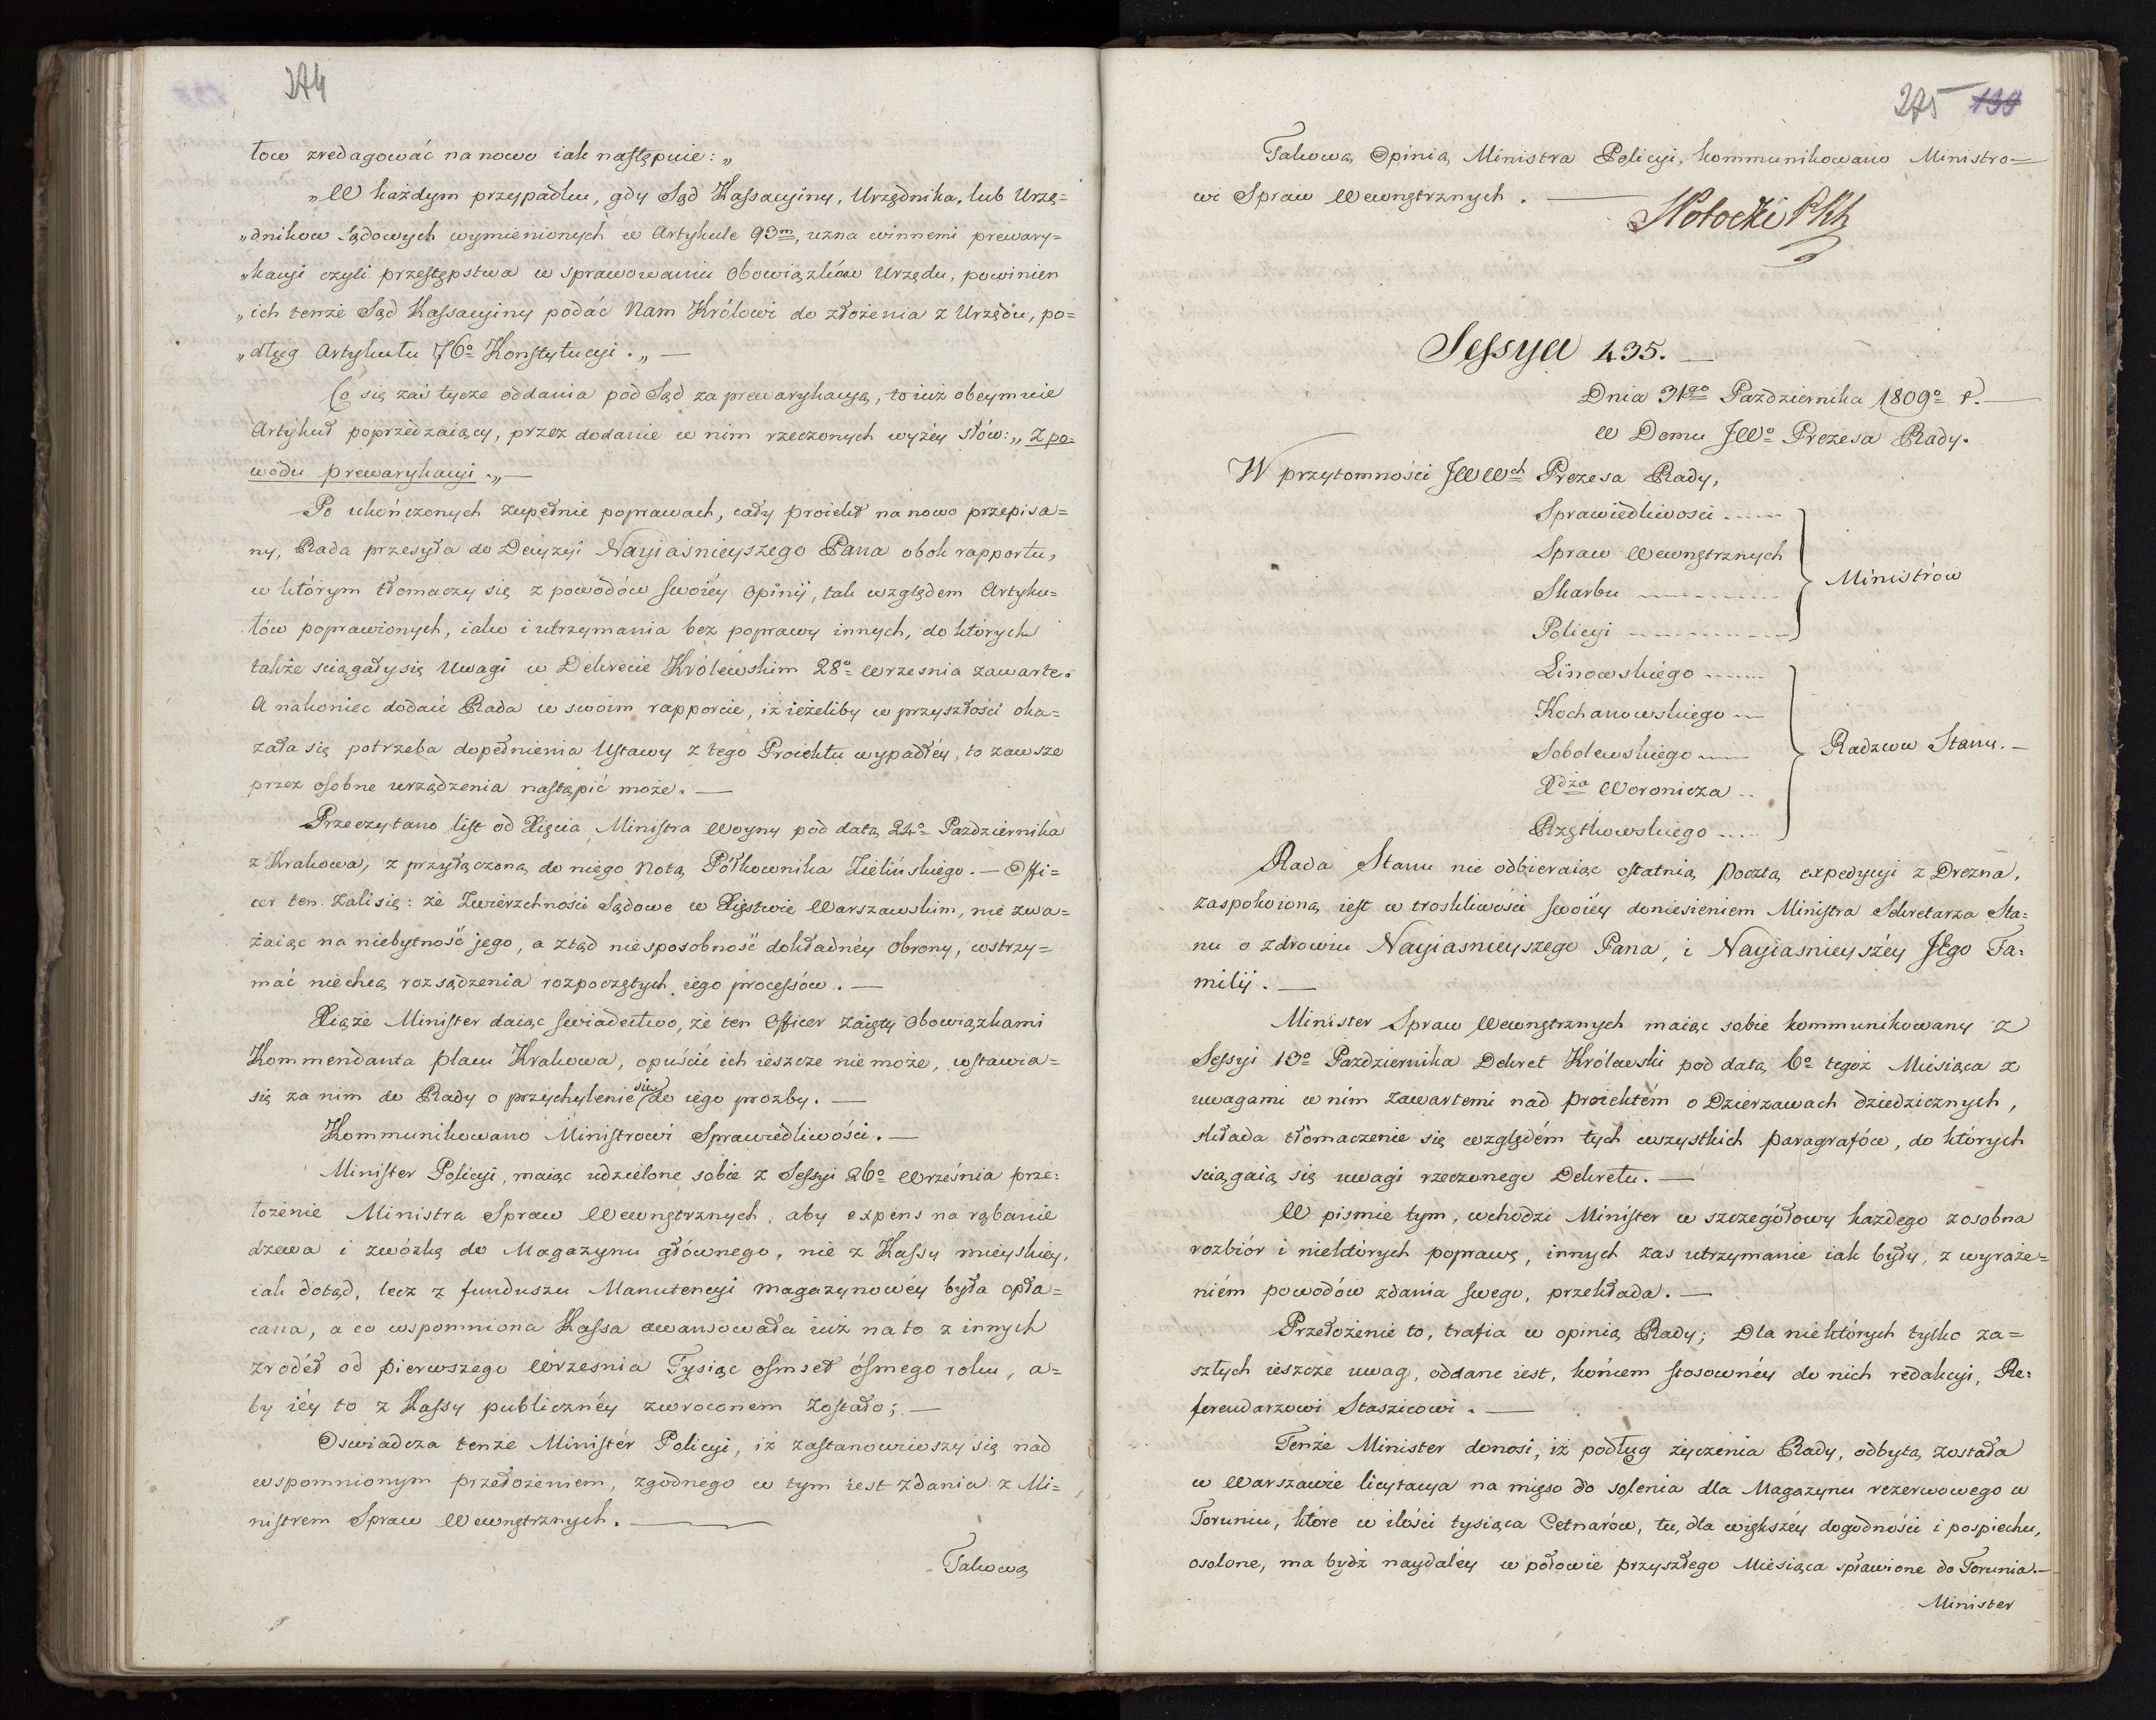 274
tow zredagować na nowo iak następuie: „
„W każdym przypadku, gdy Sąd Kassacyiny, Urzędnika, lub Urzę=
„dnikow Sądowych wymienionych w Artykule 93m, uzna winnemi prewary=
„kacyi czyli przestępstwa w sprawowaniu Obowiązków Urzędu, powinien
„ich tenże Sąd Kassacyiny podać Nam Królowi do złożenia z Urzędu, po=
„dług Artykułu 76o Konstytucyi. „ —
Co się zaś tycze oddania pod Sąd za prewarykacyą, to iuż obeymuie
Artykuł poprzedzaiący, przez dodanie w nim rzeczonych wyżéy słów: „ Z po=
wodu prewarykacyi. „ —
Po ukończonych zupełnie poprawach, cały proiekt na nowo przepisa=
ny, Rada przesyła do Decyzyi Nayiaśnieyszego Pana obok rapportu,
w którym tłomaczy się z powodów swoiéy Opinij, tak względem Artyku=
łów poprawionych, iako i utrzymania bez poprawy innych, do których
także sciągały się Uwagi w Dekrecie Królewskim 28o Wrzesnia zawarte.
A nakoniec dodaie Rada w swoim rapporcie, iż ieżeliby w przyszłości oka=
zała się potrzeba dopełnienia Ustawy z tego Proiektu wypadłéy, to zawsze
przez osobne urządzenia nastąpić może. —
Przeczytano list od Xięcia Ministra Woyny pod datą 24o Pazdziernika
z Krakowa, z przyłączoną do niego Notą Półkownika Zielińskiego. — Offi=
cer ten żali się: że Zwierzchności Sądowe w Xięstwie Warszawskim, nie zwa=
żaiąc na niebytność jego, a ztąd niesposobność dokładnéy Obrony, wstrzy=
mać niechcą rozsądzenia rozpoczętych iego processów. —
Xiąże Minister daiąc swiadectwo, że ten Officer zaięty Obowiązkami
Kommendanta placu Krakowa, opuścić ich ieszcze nie może, wstawia=
się za nim do Rady o przychylenie się do iego prozby. —
Kommunikowano Ministrowi Sprawiedliwości. —
Minister Policyi, maiąc udzielone sobie z Sessyi 26o Września prze=
łożenie Ministra Spraw Wewnętrznych, aby expens na rąbanie
drzewa i zwózkę do Magazynu głównego, nie z Kassy mieyskiey,
iak dotąd, lecz z funduszu Manutencyi magazynowéy była opła=
cana, a co wspomniona Kassa awansowała iuż na to z innych
zrodéł od pierwszego Wrzesnia Tysiąc osmset ósmego roku, a=
by iéy to z Kassy publicznéy zwroconem zostało; —
Oswiadcza tenże Ministér Policyi, iż zastanowiwszy się nad
wspomnionym przełożeniem, zgodnego w tym iest zdania z Mi=
nistrem Spraw Wewnętrznych. —
Takową
275 139
Takową Opinią Ministra Policyi, kommunikowano Ministro=
wi Spraw Wewnętrznych. —
Sessya 435. —
Dnia 31go Pazdziernika 1809o r. —
w Domu JWo Prezesa Rady.
W przytomności JWWch Prezesa Rady,
Sprawiedliwosci
Spraw Wewnętrznych
Skarbu
Policyi
Ministrów
Linowskiego
Kochanowskiego
Sobolewskiego
Xdza Woronicza
Rzętkowskiego
Radzców Stanu. —
Rada Stanu nie odbieraiąc ostatnią pocztą expedycyi z Drezna,
zaspokoioną iest w troskliwości swoiéy doniesieniem Ministra Sekretarza Sta=
nu o zdrowiu Nayiasnieyszego Pana, i Nayiasnieyszéy Jego Fa=
milij. —
Minister Spraw Wewnętrznych maiąc sobie kommunikowany z
Sessyi 13o Pazdziernika Dekret Królewski pod datą 6o tegoż Miesiąca z
uwagami w nim zawartemi nad proiektém o Dzierzawach dziedzicznych,
składa tłomaczenie się względém tych wszystkich paragrafów, do których
sciągaią się uwagi rzeczonego Dekretu. —
W pismie tym, wchodzi Minister w szczegółowy każdego zosobna
rozbiór i niektórych poprawę, innych zas utrzymanie iak były, z wyraże=
niém powodów zdania swego, przekłada. —
Przełożenie to, trafia w opinią Rady; Dla niektórych tylko za=
szłych ieszcze uwag, oddane iest, końcem stosownéy do nich redakcyi, Re=
ferendarzowi Staszicowi. —
Tenże Minister donosi, iż podług życzenia Rady, odbytą została
w Warszawie licytacya na mięso do solenia dla Magazynu rezerwowego w
Toruniu, które w ilości tysiąca Cetnarów, tu, dla większéy dogodności i pospiechu,
osolone, ma bydź naydaléy w połowie przyszłego Miesiąca spławione do Torunia. —
Minister